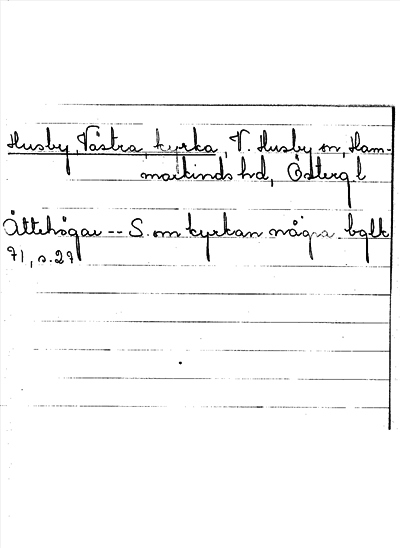 Husby, Västra, kyrka, V. Husby sn, Ham-
markinds hd, Östergl
Ättehögar -- S. om kyrkan några. bglk
71, s. 29